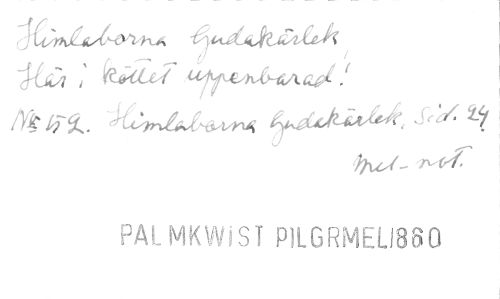 Himlaborna Gudakärlek,
Här i köttet uppenbarad!
No 152. Himlaborna Gudakärlek, Sid. 24.
Mel-not.
PALMKWIST PILGRMEL/1860